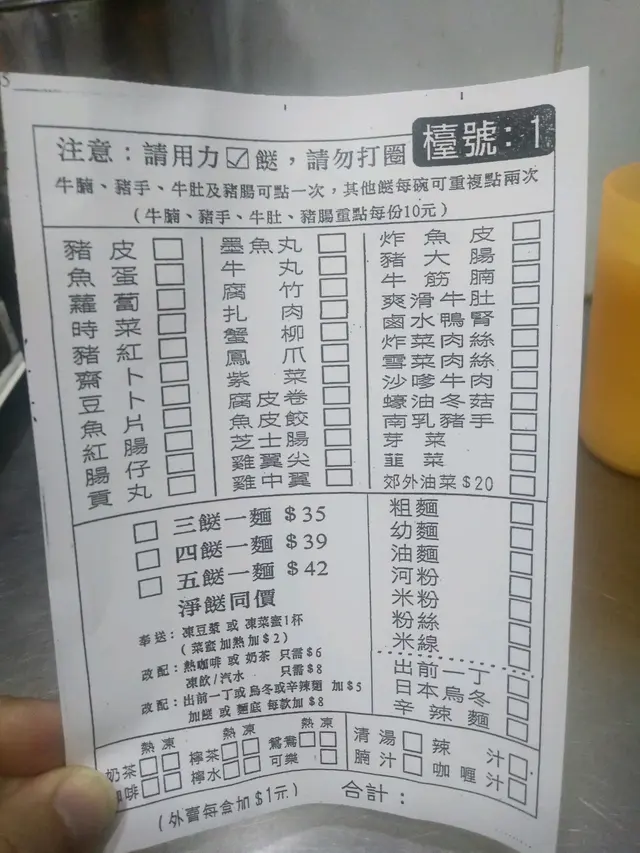 檯號：1
注意：請用力☑餸，請勿打圈
牛腩、豬手、牛肚及豬腸可點一次，其他餸每碗可重複點兩次
（牛腩、豬手、牛肚、豬腸重點每份10元）
豬皮
魚蛋
蘿蔔
時菜
豬紅
齋卜
豆卜
魚片
紅腸
腸仔
貢丸
墨魚丸
牛丸
腐竹
扎肉
蟹柳
鳳爪
紫菜
腐皮卷
魚皮餃
芝士腸
雞翼尖
雞中翼
炸魚皮
豬大腸
牛筋腩
爽滑牛肚
鹵水鴨腎
炸菜肉絲
雪菜肉絲
沙嗲牛肉
蠔油冬菇
南乳豬手
芽菜
韮菜
郊外油菜$20
三餸一麵 $35
四餸一麵 $39
五餸一麵 $42
淨餸同價
奉送：凍豆漿 或 凍菜蜜1杯
（菜蜜加熱加$2）
改配：熱咖啡 或 奶茶 只需$6
凍飲/汽水 只需$8
改配：出前一丁或烏冬或辛辣麵 加$5
加餸 或 麵底 每款加$8
粗麵
幼麵
油麵
河粉
米粉
粉絲
米線
出前一丁
日本烏冬
辛辣麵
熱 凍
奶茶
咖啡
熱 凍
檸茶
檸水
熱 凍
鴛鴦
可樂
清湯 辣汁
腩汁 咖喱汁
（外賣每盒加$1元）
合計：